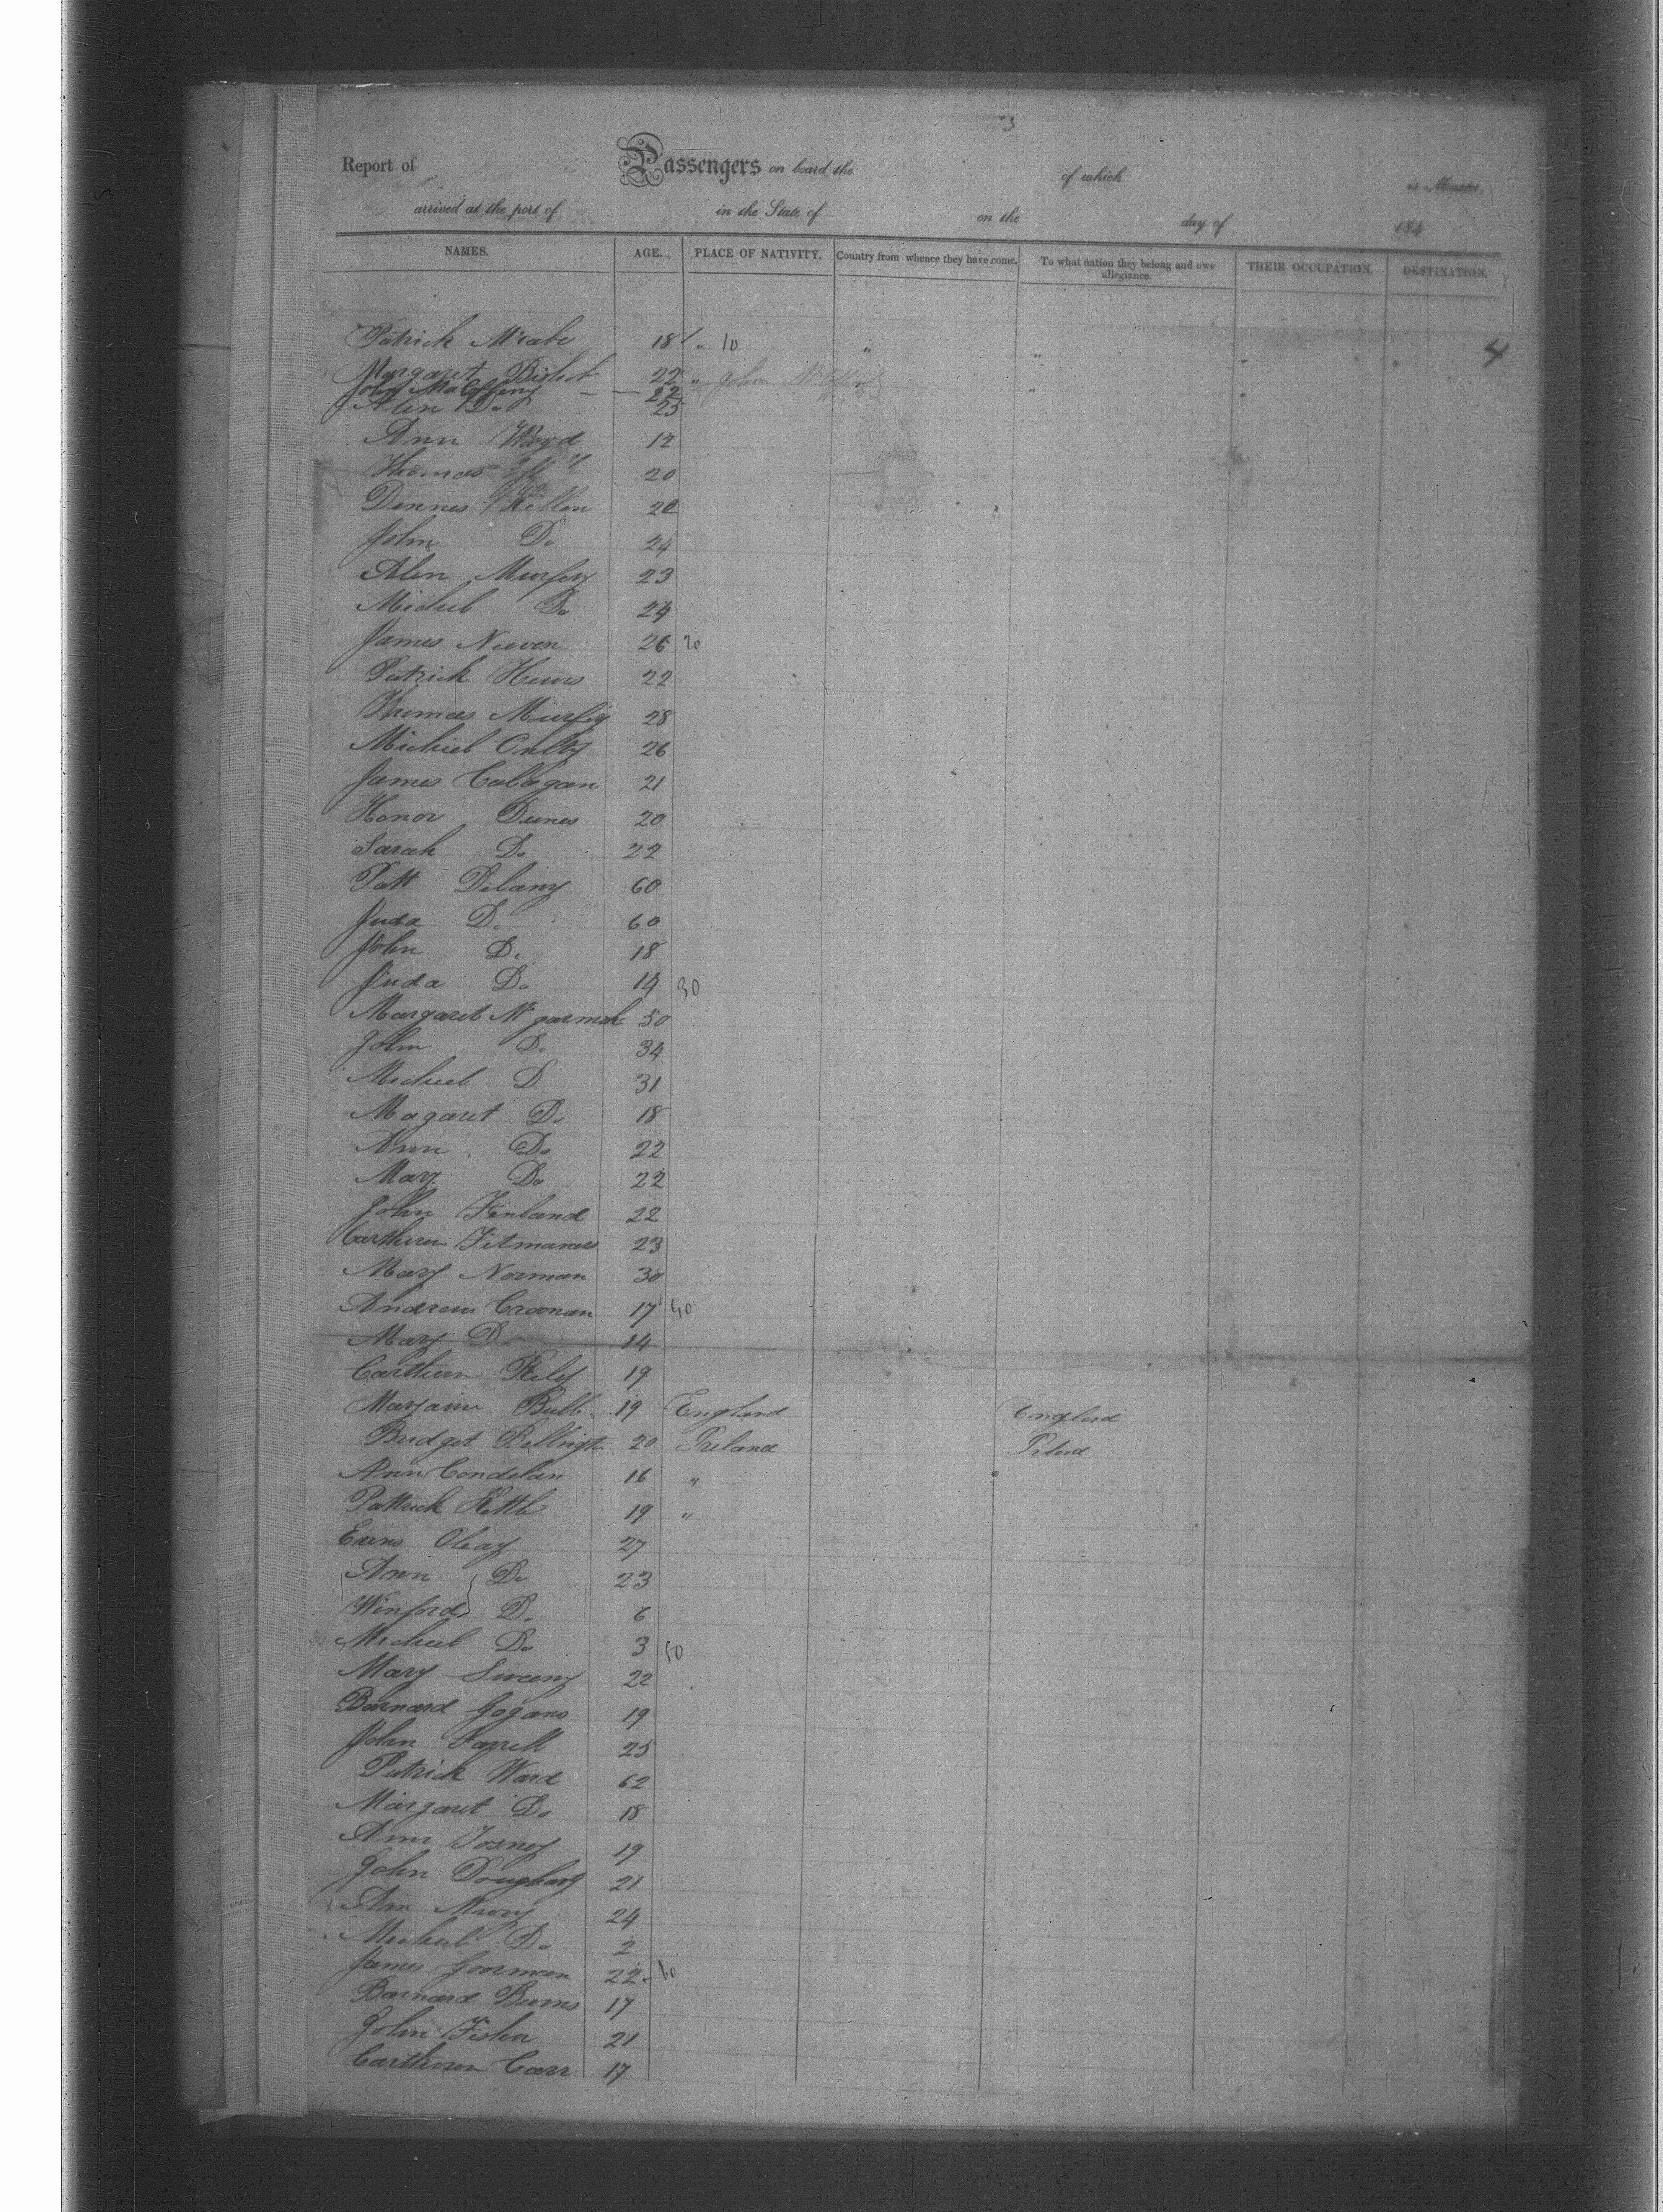 3
Report of Passengers on board the of which is Master,
arrived at the port of in the State of on the day of 184
NAMES. AGE. PLACE OF NATIVITY. Country from whence they have come. To what nation they belong and owe allegiance. THEIR OCCUPATION. DESTINATION.
Patrick Mcabe 18 " 10 " " " " 4
Margaret 22 " John
John 22 " "
Alen Do 25
Ann 12
Thomas 20
Dennis Killen 22
John Do 24
Alen Murfey 23
Michel Do 24
James Neeven 26 20
Patrick 22
Thomas Murfey 28
Michiel 26
James Calagan 21
Honor Deenes 20
Sarah Do 22
Patt Delany 60
Juda Do 60
John Do 18
Juda Do 14 30
Margaret 50
John Do 34
Michel D 31
Magaret Do 18
Ann Do 22
Mary Do 22
John Finland 22
Carthern 23
Mary Norman 30
Andrew Croonan 17 40
Mary D 14
Carthern Rily 19
Marjaim Bull 19 England England
Bridget 20 Ireland
Ann Condelan 16 " "
Pattrick Kettle 19 "
Oleay 27
Ann Do 23
Winford Do 6
Michel Do 3 50
Mary Sweeny 22
Barnard Gogans 19
John Farrell 25
Patrick Ward 62
Margaret Do 18
Ann 19
John Dougharty 21
Ann 24
Michel Do 2
James Goorman 22 60
Barnard Burns 17
John 21
Carthern Carr 17